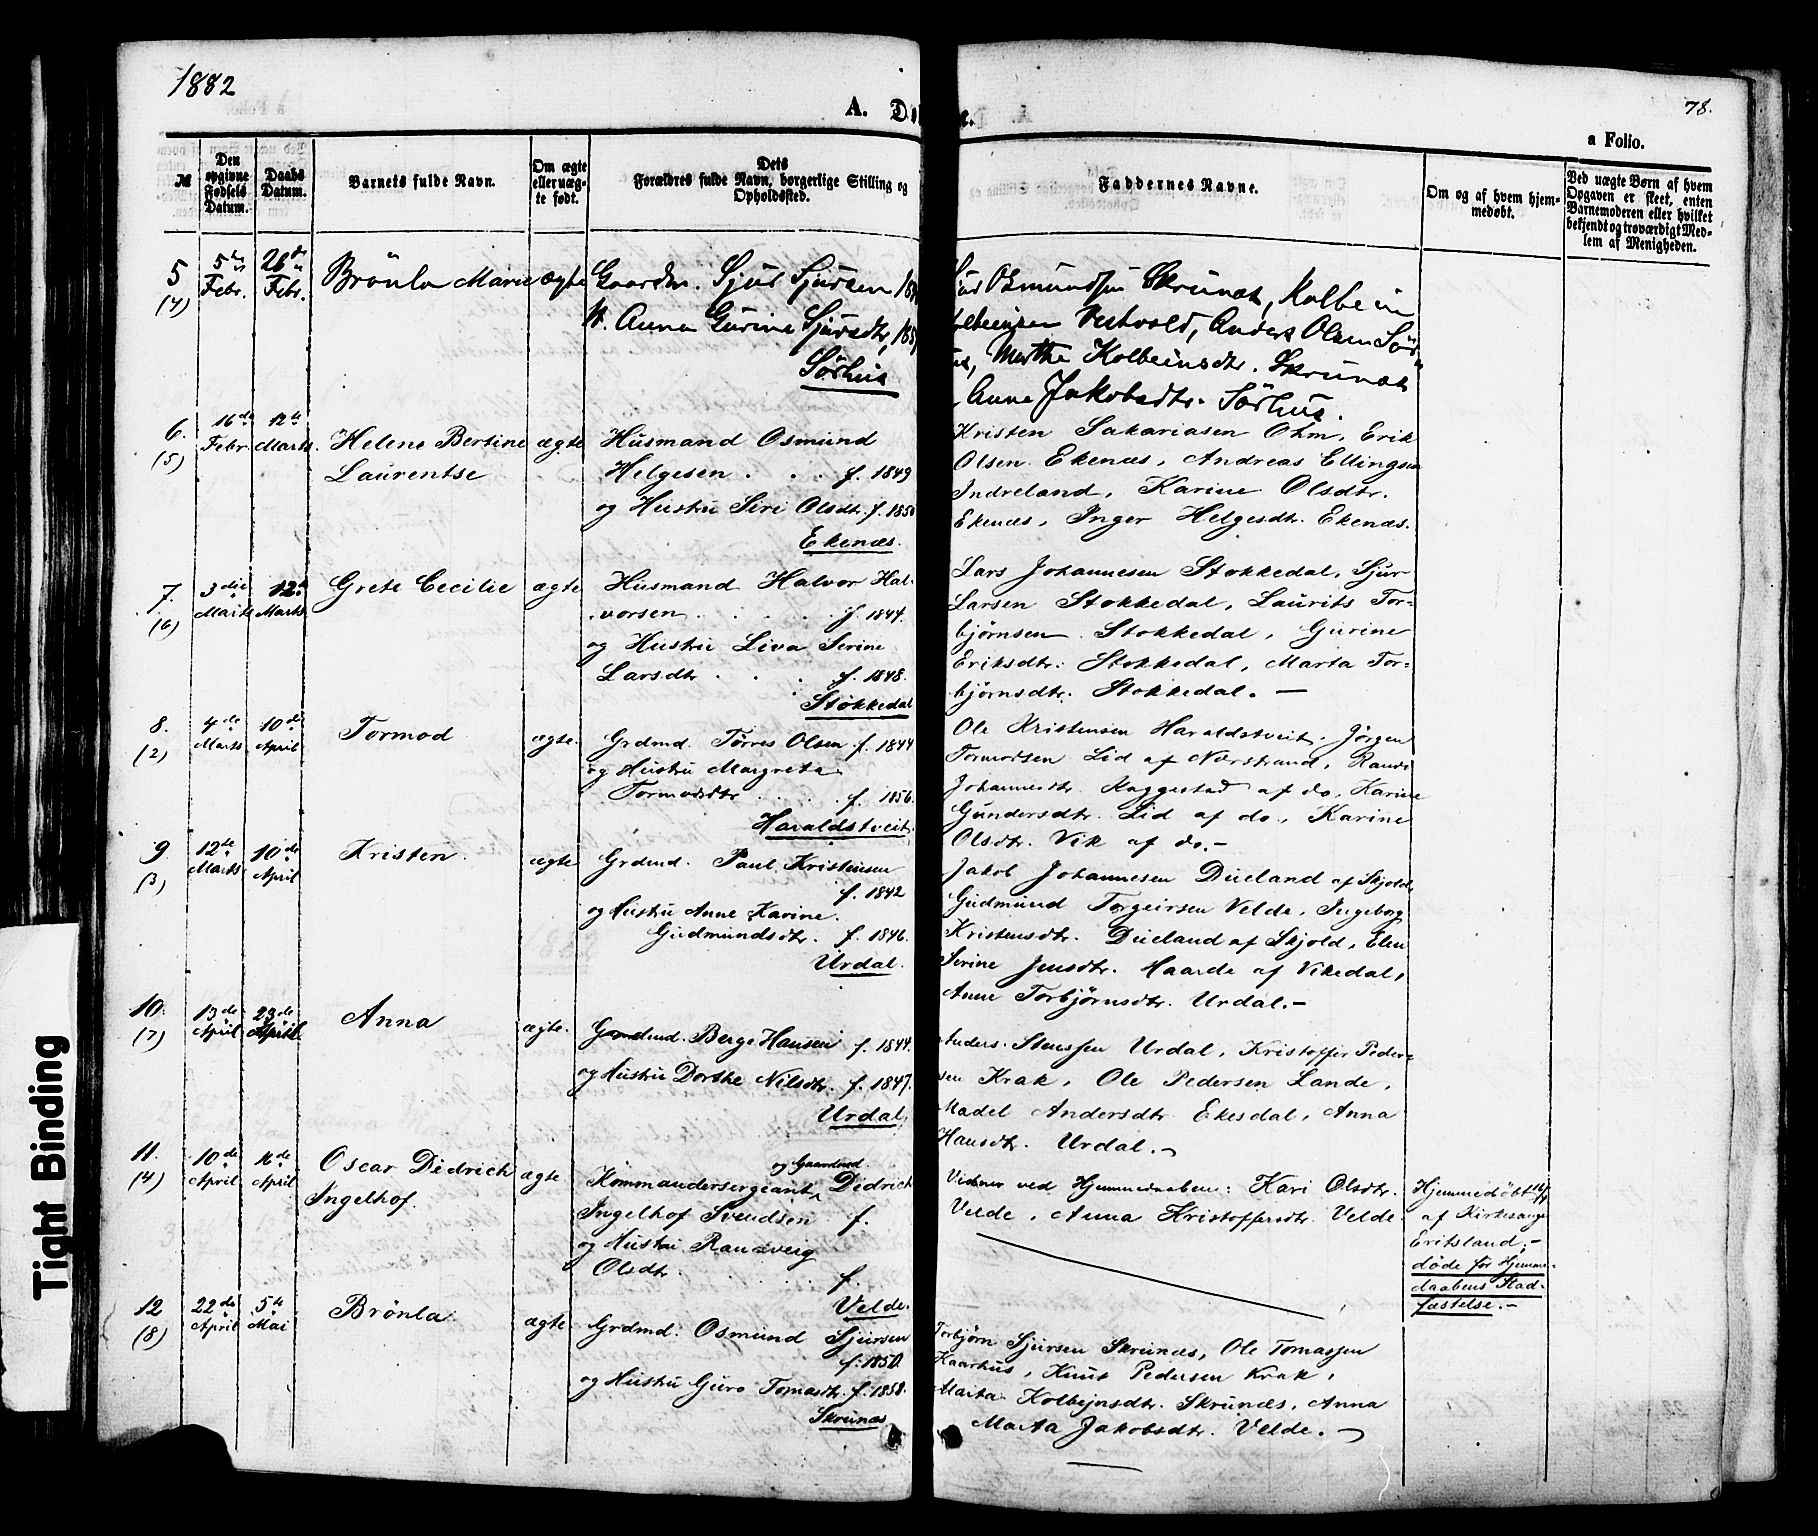 1882
A. Dø
№
Den opgivne Fødsels Datum.
Daabs Datum.
Barnets fulde Navn.
Om ægte eller uæg-te født.
Dets Forældres fulde Navn, borgerlige Stilling og Opholdssted.
5 (4)
5te Febr.
26de Febr.
Brönla Marie
ægte
Gaardm. Sjur Sjursen
H. Anna Gurine Sjursdtr,
Sørhus
6. (5)
16de Febr
12te Marts.
Helene Bertine
Laurentse
ægte
Husmand Osmund
Helgesen . . . f. 1849
og Hustru Siri Olsdtr. f. 1850
Ekenæs.
7. (6)
3die Marts
12te Marts
Grete Cecilie
ægte
Husmand Halvor Hal-
vorsen . . . . f. 1844.
og Hustru Liva Serine
Larsdtr . . . f. 1848.
Stokkedal
8. (2)
4de Marts
10de April
Tormod
ægte.
Grdmd. Tørres Olsen f. 1844
og Hustru Margreta
Tormodsdtr . . . . f. 1856.
Haraldstveit
9 (3)
12te Marts
10de April
Kristen.
ægte
Grdmd. Paul Kristensen
f. 1842
og Hustru Anne Karine
Gudmundsdtr. f. 1846.
Urdal.
10. (7)
13de April
23de April.
Anna
ægte.
Gaardmd. Berge Hansen f. 1844.
og Hustru Dorthe Nilsdtr. f. 1847.
Urdal,
11. (4)
10de April
16de April
Oscar Didrich
Ingelhof.
ægte
og Gaardmd.
Kommandersergeant Didrich
Ingelhof Svendsen f.
og Hustru Randveig
Olsdtr. . . . . . f.
Velde.
12 (8)
22de April
5te Mai
Brönla.
ægte
Grdmd. Osmund Sjursen
f. 1850.
og Hustru Guro Tomasdtr. f. 1858.
Skrunæs
78.
a Folio.
Faddernes Navne.
Om og af hvem hjem-medøbt.
Ved uægte Børn af hvem Opgaven er skeet, enten Barnemoderen eller hvilket bekjendt og troværdigt Med-lem af Menigheden.
Osmundsen Skrunæs, Kolbein
Vestvold, Anders Olsen Sør
Marthe Kolbeinsdtr. Skrunæs
Anne Jakobsdtr. Sørhus.
Kristen Sakariasen Ohm, Erik
Olsen Ekenæs, Andreas Ellingsen
Indreland, Karine Olsdtr.
Ekenæs, Inger Helgesdtr. Ekenæs.
Lars Johannesen Stokkedal, Sjur
Larsen Stokkedal, Laurits Tor-
bjørnsen Stokkedal, Gurine
Eriksdtr. Stokkedal, Marta Tor-
bjørnsdtr. Stokkedal. —
Ole Kristensen Haraldstveit, Jörgen
Tormodsen Lid af Nærstrand, Ranvei
Johannesdtr. Raggestad af do, Karine
Gundersdtr. Lid af do, Karine
Olsdtr. Vik af do. —
Jakob Johannesen Dueland af Skjold,
Gudmund Torgeirsen Velde, Ingeborg
Kristensdtr. Dueland af Skjold, Elen
Serine Jensdtr. Haarde af Vikedal,
Anne Torbjørnsdtr. Urdal. —
Anders Stenssen Urdal, Kristoffer Peder-
sen Krak, Ole Pedersen Lande,
Madel Andersdtr Ekesdal, Anna
Hansdtr. Urdal. —
Vidner ved Hjemmedaaben: Kari Olsdtr.
Velde, Anna Kristoffersdtr. Velde
Hjemmedøbt 16/4
af Kirkesang.
Eritsland. —
døde før Hjemme-
daabens Stad-
fæstelse. —
Torbjørn Sjursen Skrunæs, Ole Tomassen
Kaarhus, Knut Pedersen Krak,
Marta Kolbejnsdtr. Skrunæs, Anna
Marta Jakobsdtr. Velde. —
Tight Binding